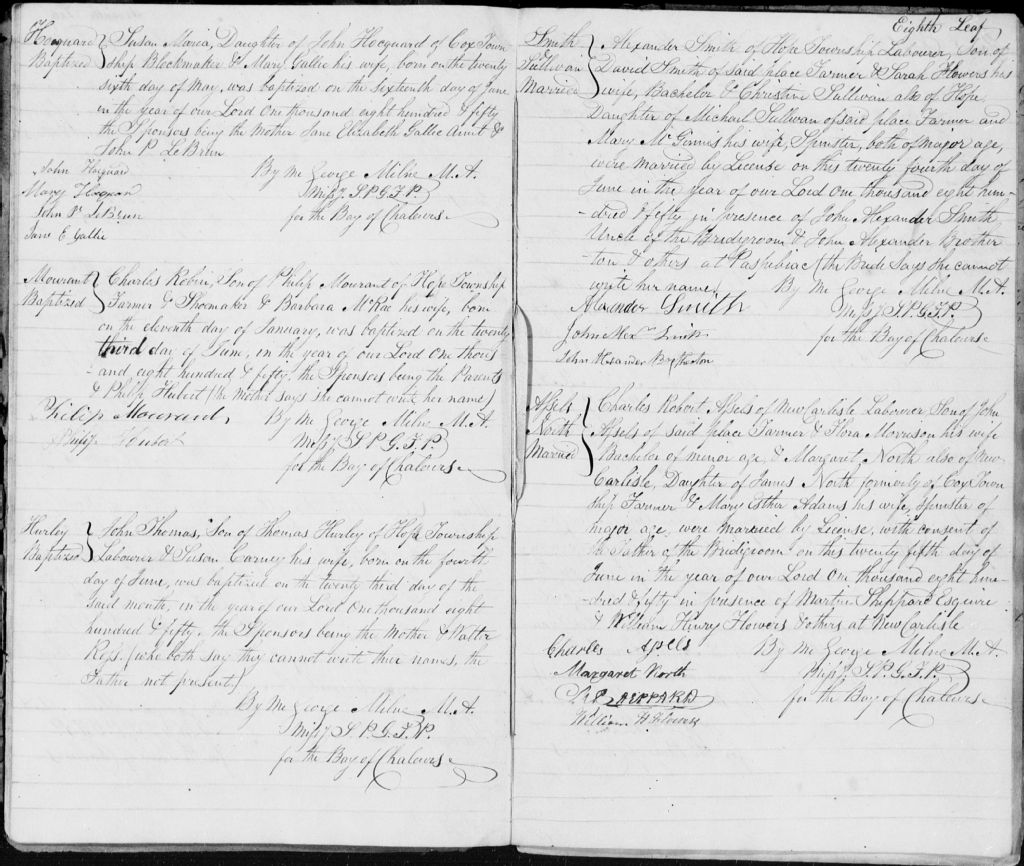 Hocquard } Susan Maria, Daughter of John Hocquard of Cox Town
Baptized } ship Blockmaker & Mary Gallie his wife, born on the twenty
sixth day of May, was baptized on the Sixteenth day of June
in the year of our Lord One thousand eight hundred & fifty
the Sponsors being the Mother Jane Elizabeth Gallie Aunt &
John P. LeBrun
John Hocquard
By Me George Milne M.A.
Mary Hocquard
Missy. S.P.G.F.P.
John P. LeBrun
for the Bay of Chaleurs
Jane E Gallie
Mourant } Charles Robin, Son of Philip Mourant of Hope Township
Baptized } Farmer & Shoemaker & Barbara McRae his wife, born
on the eleventh day of January, was baptized on the twenty
third day of June, in the year of our Lord One thous
-and eight hundred & fifty. the Sponsors being the Parents
& Philip Hubert (the Mother says she cannot write her name)
Philip Mourant,
By Me George Milne M.A.
Missy. S.P.G.F.P.
for the Bay of Chaleurs
Hurley } John Thomas, Son of Thomas Hurley of Hope Township
Baptized } Labourer & Susan Carney his wife, born on the fourth
day of June, was baptized on the twenty third day of the
said month, in the year of our Lord One thousand eight
hundred & fifty. the Sponsors being the Mother & Walter
(who both say they cannot write their names, the
Father not present)
By Me George Milne M.A.
Missy. S.P.G.F.P.
for the Bay of Chaleurs
Eighth Leaf
Smith } Alexander Smith of Hope Township Labourer, Son of
Sullivan } David Smith of said place Farmer & Sarah Flowers his
Married } wife, Bachelor & Christine Sullivan also of Hope
Daughter of Michael Sullivan of said place Farmer and
Mary McGinnis his wife, Spinster, both of major age,
were married by License on this twenty fourth day of
June in the year of our Lord One thousand eight hun-
-dred & fifty in presence of John Alexander Smith
Uncle of the Bridegroom & John Alexander Brother
ton & others at Pashebiac (the Bride says she cannot
write her name)
By Me George Milne M.A.
Alexander Smith
Missy. S.P.G.F.P.
John Alexr Smith
for the Bay of Chaleurs
John Alexander Brotherton
Assels } Charles Robert Assels of New Carlisle Labourer Son of John
North } Assels of said place Farmer & Flora Morrison his wife
Married } Bachelor of minor age, & Margaret North also of New
Carlisle, Daughter of James North formerly of Cox Town
ship Farmer & Mary Esther Adams his wife, Spinster of
major age, were married by License, with consent of
the Father of the Bridegroom on this twenty fifth day of
June in the year of our Lord One thousand eight hun
-dred & fifty in presence of Martin Sheppard Esquire
& William Henry Flowers & others at New Carlisle
Charles Assels
By Me George Milne M.A.
Margaret North
Missy. S.P.G.F.P.
SHEPPARD
for the Bay of Chaleurs
William H Flowers